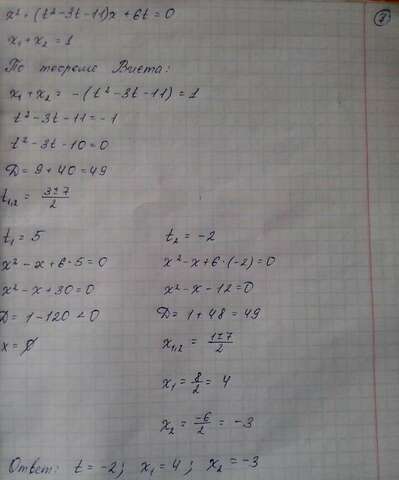 x² + (t²-3t-11)x + 6t = 0
7
x₁ + x₂ = 1
По теореме Виета:
x₁ + x₂ = -(t²-3t-11) = 1
t²-3t-11 = -1
t²-3t-10 = 0
D = 9 + 40 = 49
t₁,₂ = (3±7)/2
t₁ = 5
x² - x + 6·5 = 0
x² - x + 30 = 0
D = 1 - 120 < 0
x = ∅
t₂ = -2
x² - x + 6·(-2) = 0
x² - x - 12 = 0
D = 1 + 48 = 49
x₁,₂ = (1±7)/2
x₁ = 8/2 = 4
x₂ = -6/2 = -3
Ответ: t = -2; x₁ = 4; x₂ = -3